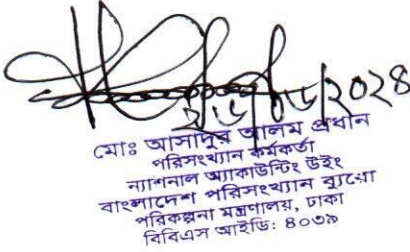 ২৮/০৮/২০২৪
মোঃ আসাদুর আলম প্রধান
পরিসংখ্যান কর্মকর্তা
ন্যাশনাল অ্যাকাউন্টিং উইং
বাংলাদেশ পরিসংখ্যান ব্যুরো
পরিকল্পনা মন্ত্রণালয়, ঢাকা
বিবিএস আইডি: ৪০৩৯